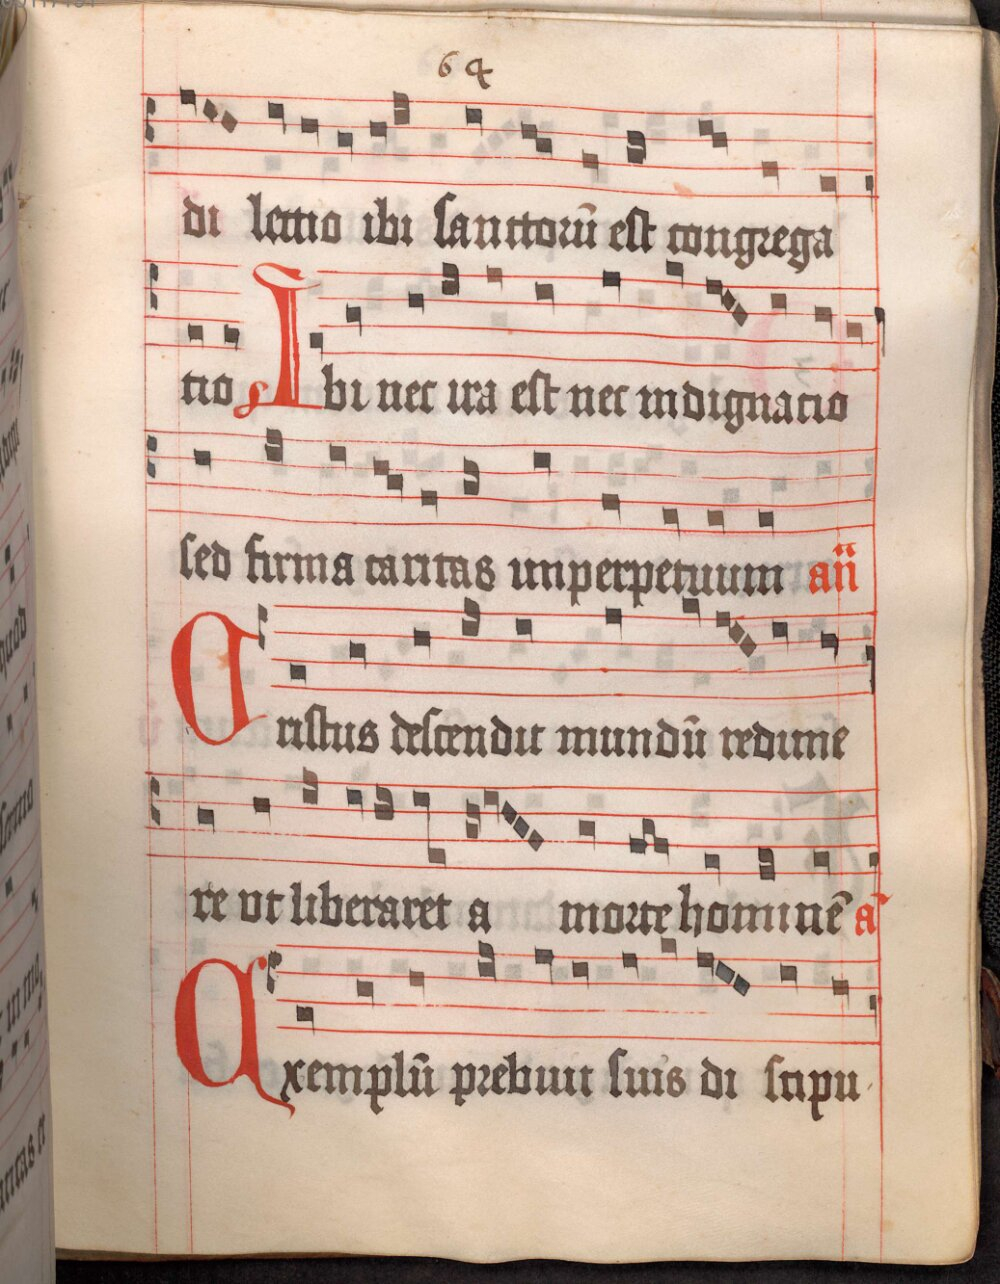 64
di lectio ibi sanctorū est congrega
tio Ibi nec ira est nec indignatio
sed firma caritas imperpetuum añ
Cristus descendit mundū redime
re vt liberaret a morte hominē a
Exemplū prebuit suis di scipu